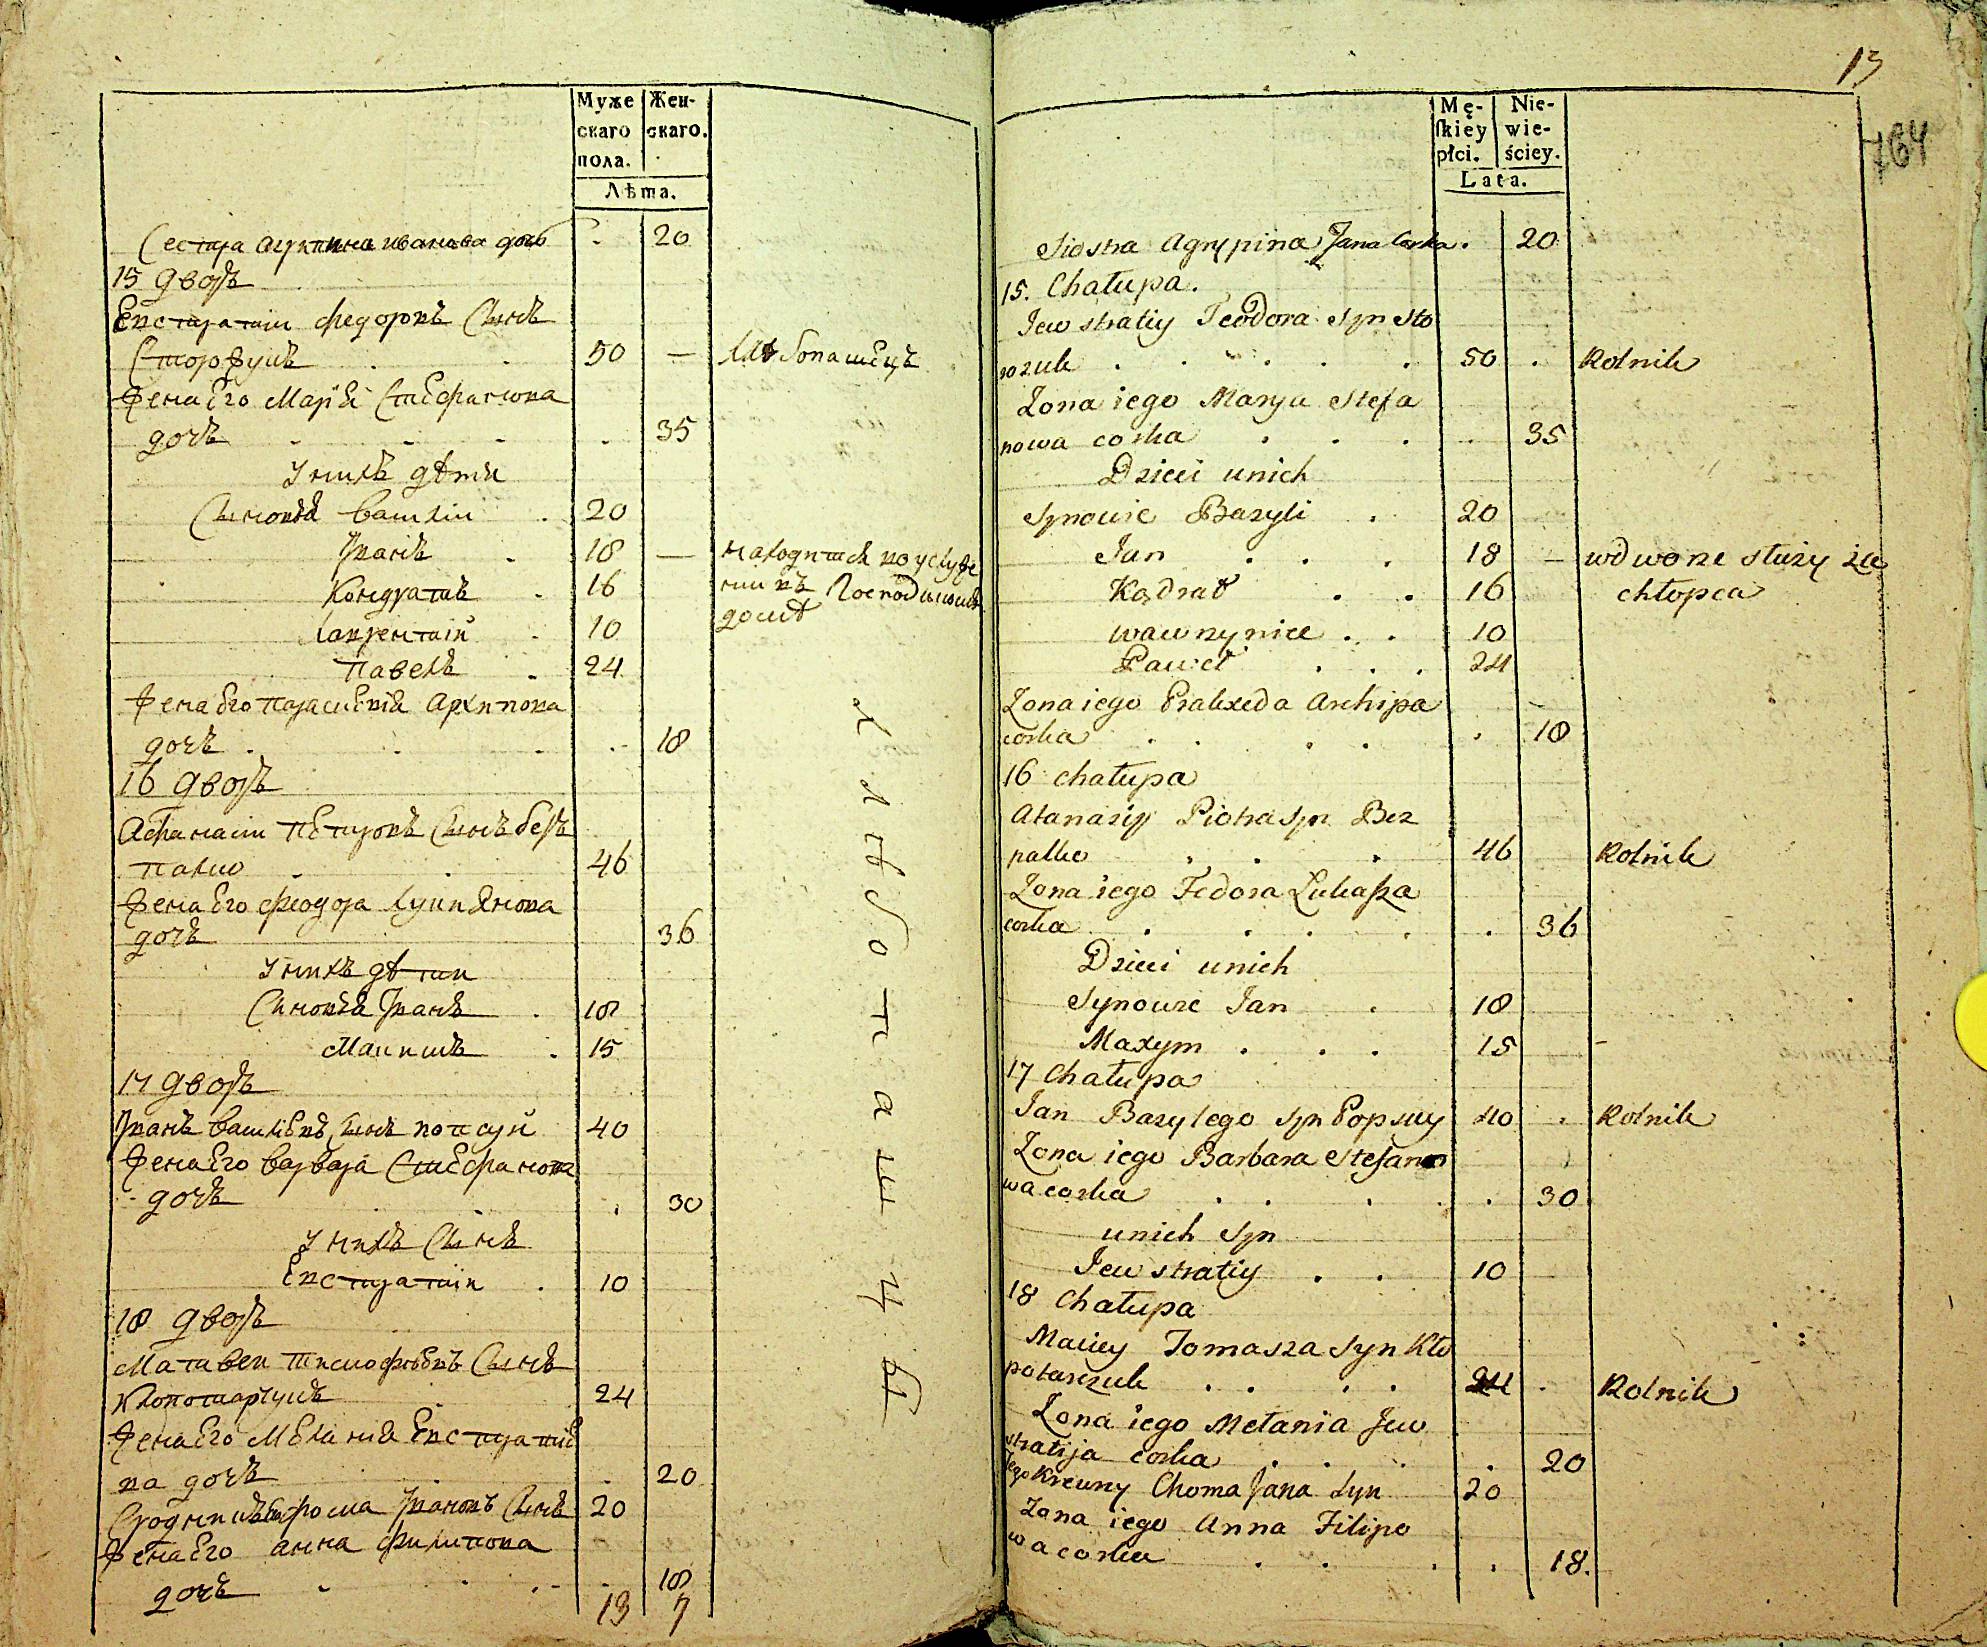 Муже
скаго
пола.
Жен-
скаго.
Лѣта.
Сестра Агрипина иванова дочь . 20
15 Дворъ
Евстратіи федоровъ Сынъ
Сторожукъ . . 50 — Хлѣбопашецъ
Жена Его Маріѣ Стефанова
дочъ - - - . 35
У нихъ дѣти
Сыновья василіи . 20
Иванъ . 18 — находится в услуже
Кондратъ . 16 нии въ Господскомъ
Лаврентій . 10 домѣ
Павелъ . 24
Жена Его Параскевія Архипова
дочъ . . . . 18
16 Дворъ
Афанасіи Петровъ Сынъ безъ
палко . . 46
Жена Его феодора Лукиянова
дочъ 36
У нихъ дѣти
Сыновья Иванъ . 18
Максимъ . 15
17 Дворъ
Иванъ василевъ Сынъ попсуй 40
Жена Его варвара Стефанова
дочъ . 30
У нихъ Сынъ
Евстратіи . 10
18 Дворъ
Матвеи тимофѣевъ Сынъ
Клопотарчукъ . 24
Жена Его Меланія Евстратие
ва дочъ . . . 20
Сродникъ Его фома Ивановъ Сынъ 20
Жена Его анна филипова
дочъ . . . . 18
13 7
хлѣбопашцы
13
764
Mę-
skiey
płci.
Nie-
wie-
ściey.
Lata.
Siostra Agrypina Jana Corka . 20
15. Chałupa.
Jewstratiy Teodora Syn Sto
rozuk . . . . . 50 . Rolnik
Zona iego Marya Stefa
nowa corka . . . . 35
Dzieci unich
Synowie Bazyli . 20
Jan . . . 18 – wdworze służy za
Kądrat . . 16 chłopca
wawrzyniec . . 10
Paweł . . . 24
Zona iego Praxeda Archipa
corka . . . . . 18
16 chałupa
Atanazy Piotra Syn Bez
palko . . . 46 Rolnik
Zona iego Fedora Łukasza
corka . . . . . 36
Dzieci unich
Synowie Jan . 18
Maxym . . . 15
17 Chałupa
Jan Bazylego Syn Popsuy 40 . Rolnik
Zona iego Barbara Stefano
wa corka . . . . 30
unich Syn
Jewstratiy . . 10
18 Chałupa
Maciey Tomasza Syn Kło
potarczuk . . . . 24 . Rolnik
Zona iego Metania Jew
stratija corka . . . . 20
Jego Krewny Choma Jana Syn 20
Zona iego Anna Filipo
wa corka . . . . 18.